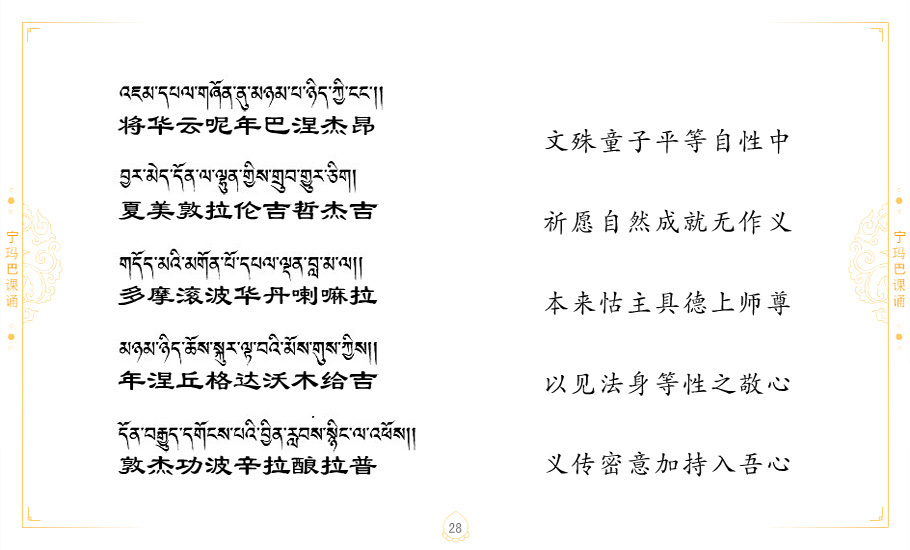 འཇམ་དཔལ་གཞོན་ནུ་མཉམ་པ་ཉིད་ཀྱི་ངང་།།
将华云呢年巴涅杰昂
文殊童子平等自性中
བྱར་མེད་དོན་ལ་ལྷུན་གྱིས་གྲུབ་གྱུར་ཅིག།
夏美敦拉伦吉哲杰吉
祈愿自然成就无作义
གདོད་མའི་མགོན་པོ་དཔལ་ལྡན་བླ་མ་ལ།།
多摩滚波华丹喇嘛拉
本来怙主具德上师尊
མཉམ་ཉིད་ཆོས་སྐུར་ལྟ་བའི་མོས་གུས་ཀྱིས།།
年涅丘格达沃木给吉
以见法身等性之敬心
དོན་བརྒྱུད་དགོངས་པའི་བྱིན་རླབས་སྙིང་ལ་འཕོས།།
敦杰功波辛拉酿拉普
义传密意加持入吾心
宁玛巴课诵
宁玛巴课诵
28